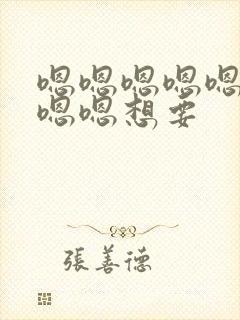 嗯嗯嗯嗯嗯
嗯嗯想要
張善德